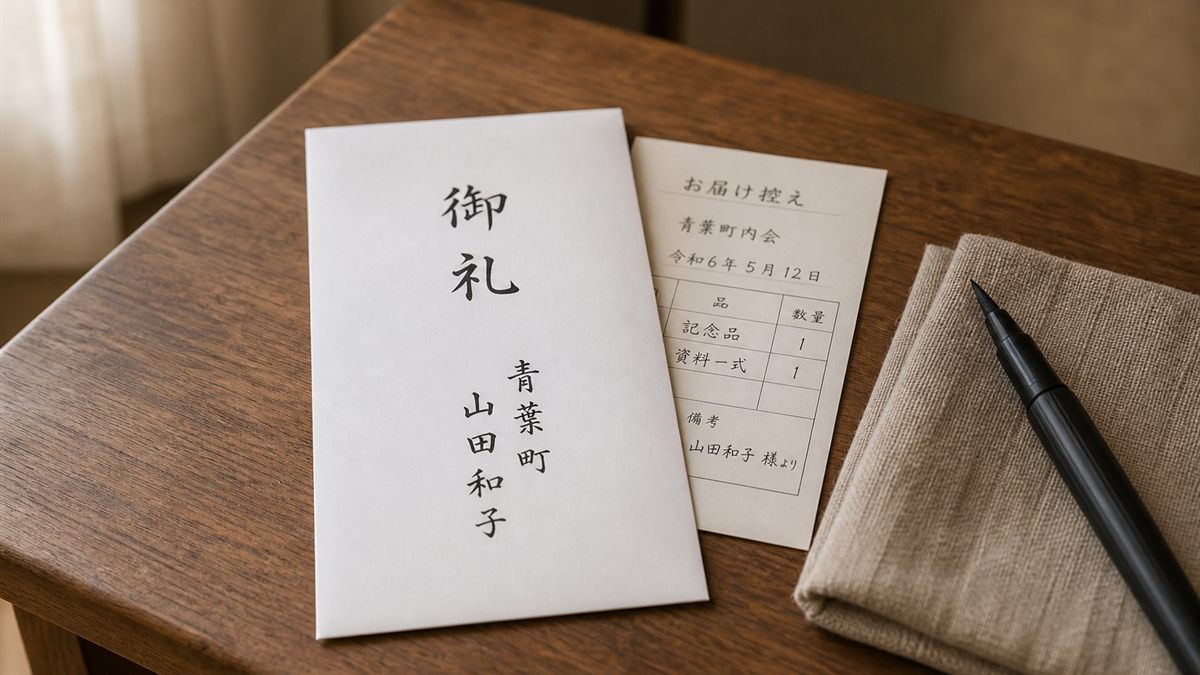 御礼
青葉町
山田和子
お届け控え
青葉町内会
令和6年5月12日
品 数量
記念品 1
資料一式 1
備考
山田和子 様より